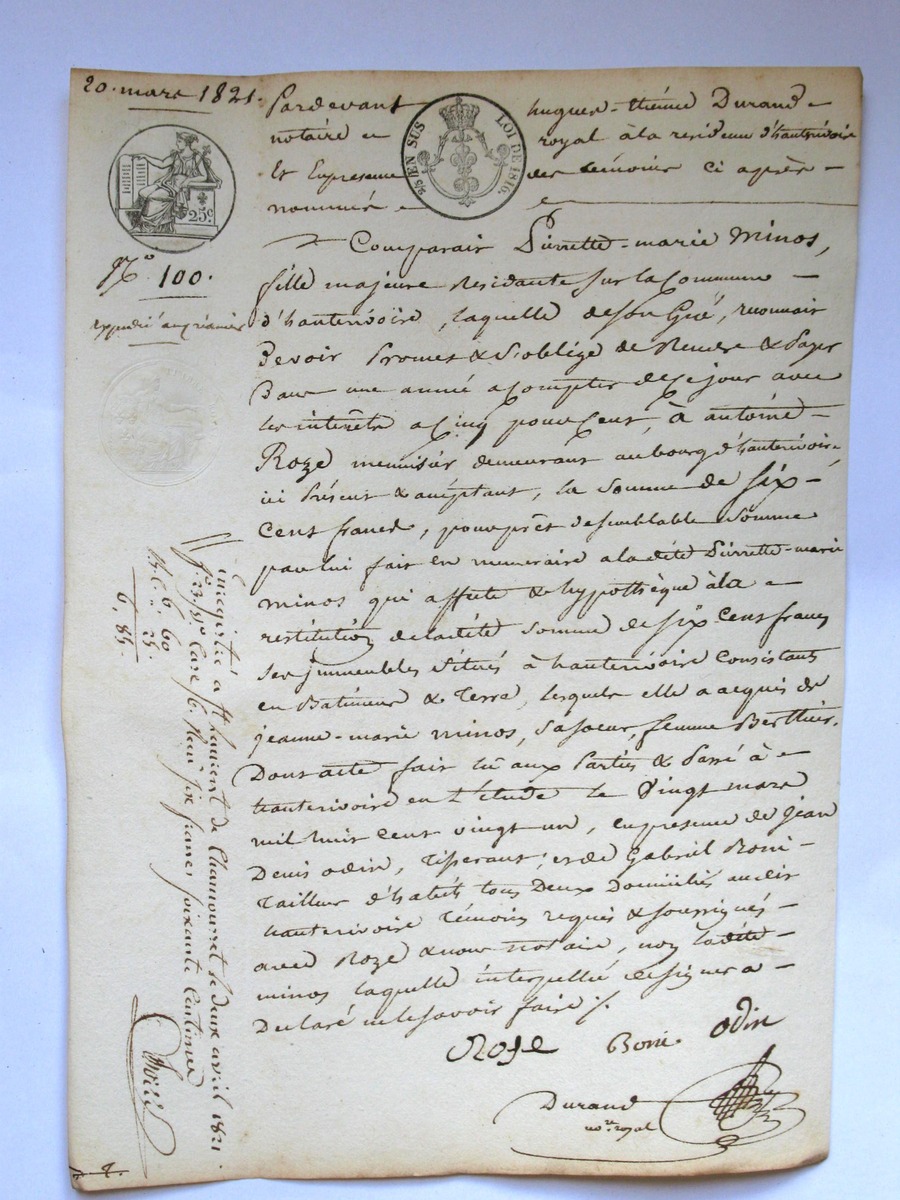 20. mars 1821.
Pardevant hugues-thième Durand
notaire royal à la residence d'hauterivoire
Et En presence des témoins ci après
nommés
25c.
25 EN SUS
LOI DE 1816.
N° 100.
expedié au créancier
Comparait Pierrette-marie Minos,
fille majeure Residante sur la Commune
d'hauterivoire, laquelle de son Gré, reconnait
Devoir Promet & S'oblige de Rendre & Payer
Dans une année a compter de ce jour avec
les intérêts a Cinq pour Cent, à antoine
Roze menuisier demeurant au bourg d'hauterivoire
ici Présent & acceptant, la somme de six
Cent francs, pour prêt de semblable Somme
par lui fait en numeraire a ladite Pierrette-marie
minos qui affecte & hypothèque à la
restitution de ladite somme de six Cent francs
ses immeubles Situés à hauterivoire Consistants
en Batiment & Terre, lesquels elle a acquis de
jeanne-marie minos, sa soeur, femme Berthier.
Dont acte fait lu aux Parties & Passé à
hauterivoire en l'Etude le Vingt mars
mil huit cent vingt un, en presence de Jean
Denis odin, Tisserant, et de Gabriel Boni
Tailleur d'habits tous Deux Domiciliés audit
hauterivoire Témoins requis & soussignés
avec Roze & nous notaire, non ladite
minos laquelle interpellée de signer a
Declaré ne le savoir faire /.
Roze Boni. Odin
Durand
no.re royal
Enregistré à St Laurent de Chamousset le deux avril 1821.
f° 23 v° Case 6. Reçu six francs soixante Centimes
6 60
6,85.